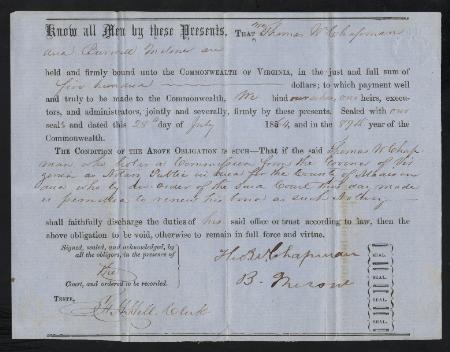 Know all Men by these Presents, THAT we Thomas W Chapman
and are
held and firmly bound unto the COMMONWEALTH OF VIRGINIA, in the just and full sum of
five hundred dollars; to which payment well
and truly to be made to the Commonwealth, We bind ourselves, our heirs, execu-
tors, and administrators, jointly and severally, firmly by these presents. Sealed with our
seals and dated this 28th day of July 1864, and in the 89th year of the
Commonwealth.
THE CONDITION OF THE ABOVE OBLIGATION IS SUCH—That if the said Thomas W Chap-
man who holds a Commission from the Governor of Vir
ginia as Notary Public in and for the County of Madison
and who by an order of the said Court this day made
is permitted to renew his bond as such Notary
shall faithfully discharge the duties of his said office or trust according to law, then the
above obligation to be void, otherwise to remain in full force and virtue.
Signed, sealed, and acknowledged, by
all the obligors, in the presence of
the
Court, and ordered to be recorded.
TESTE, Hill, Clerk
Chapman
B.
SEAL.
SEAL.
SEAL.
SEAL.